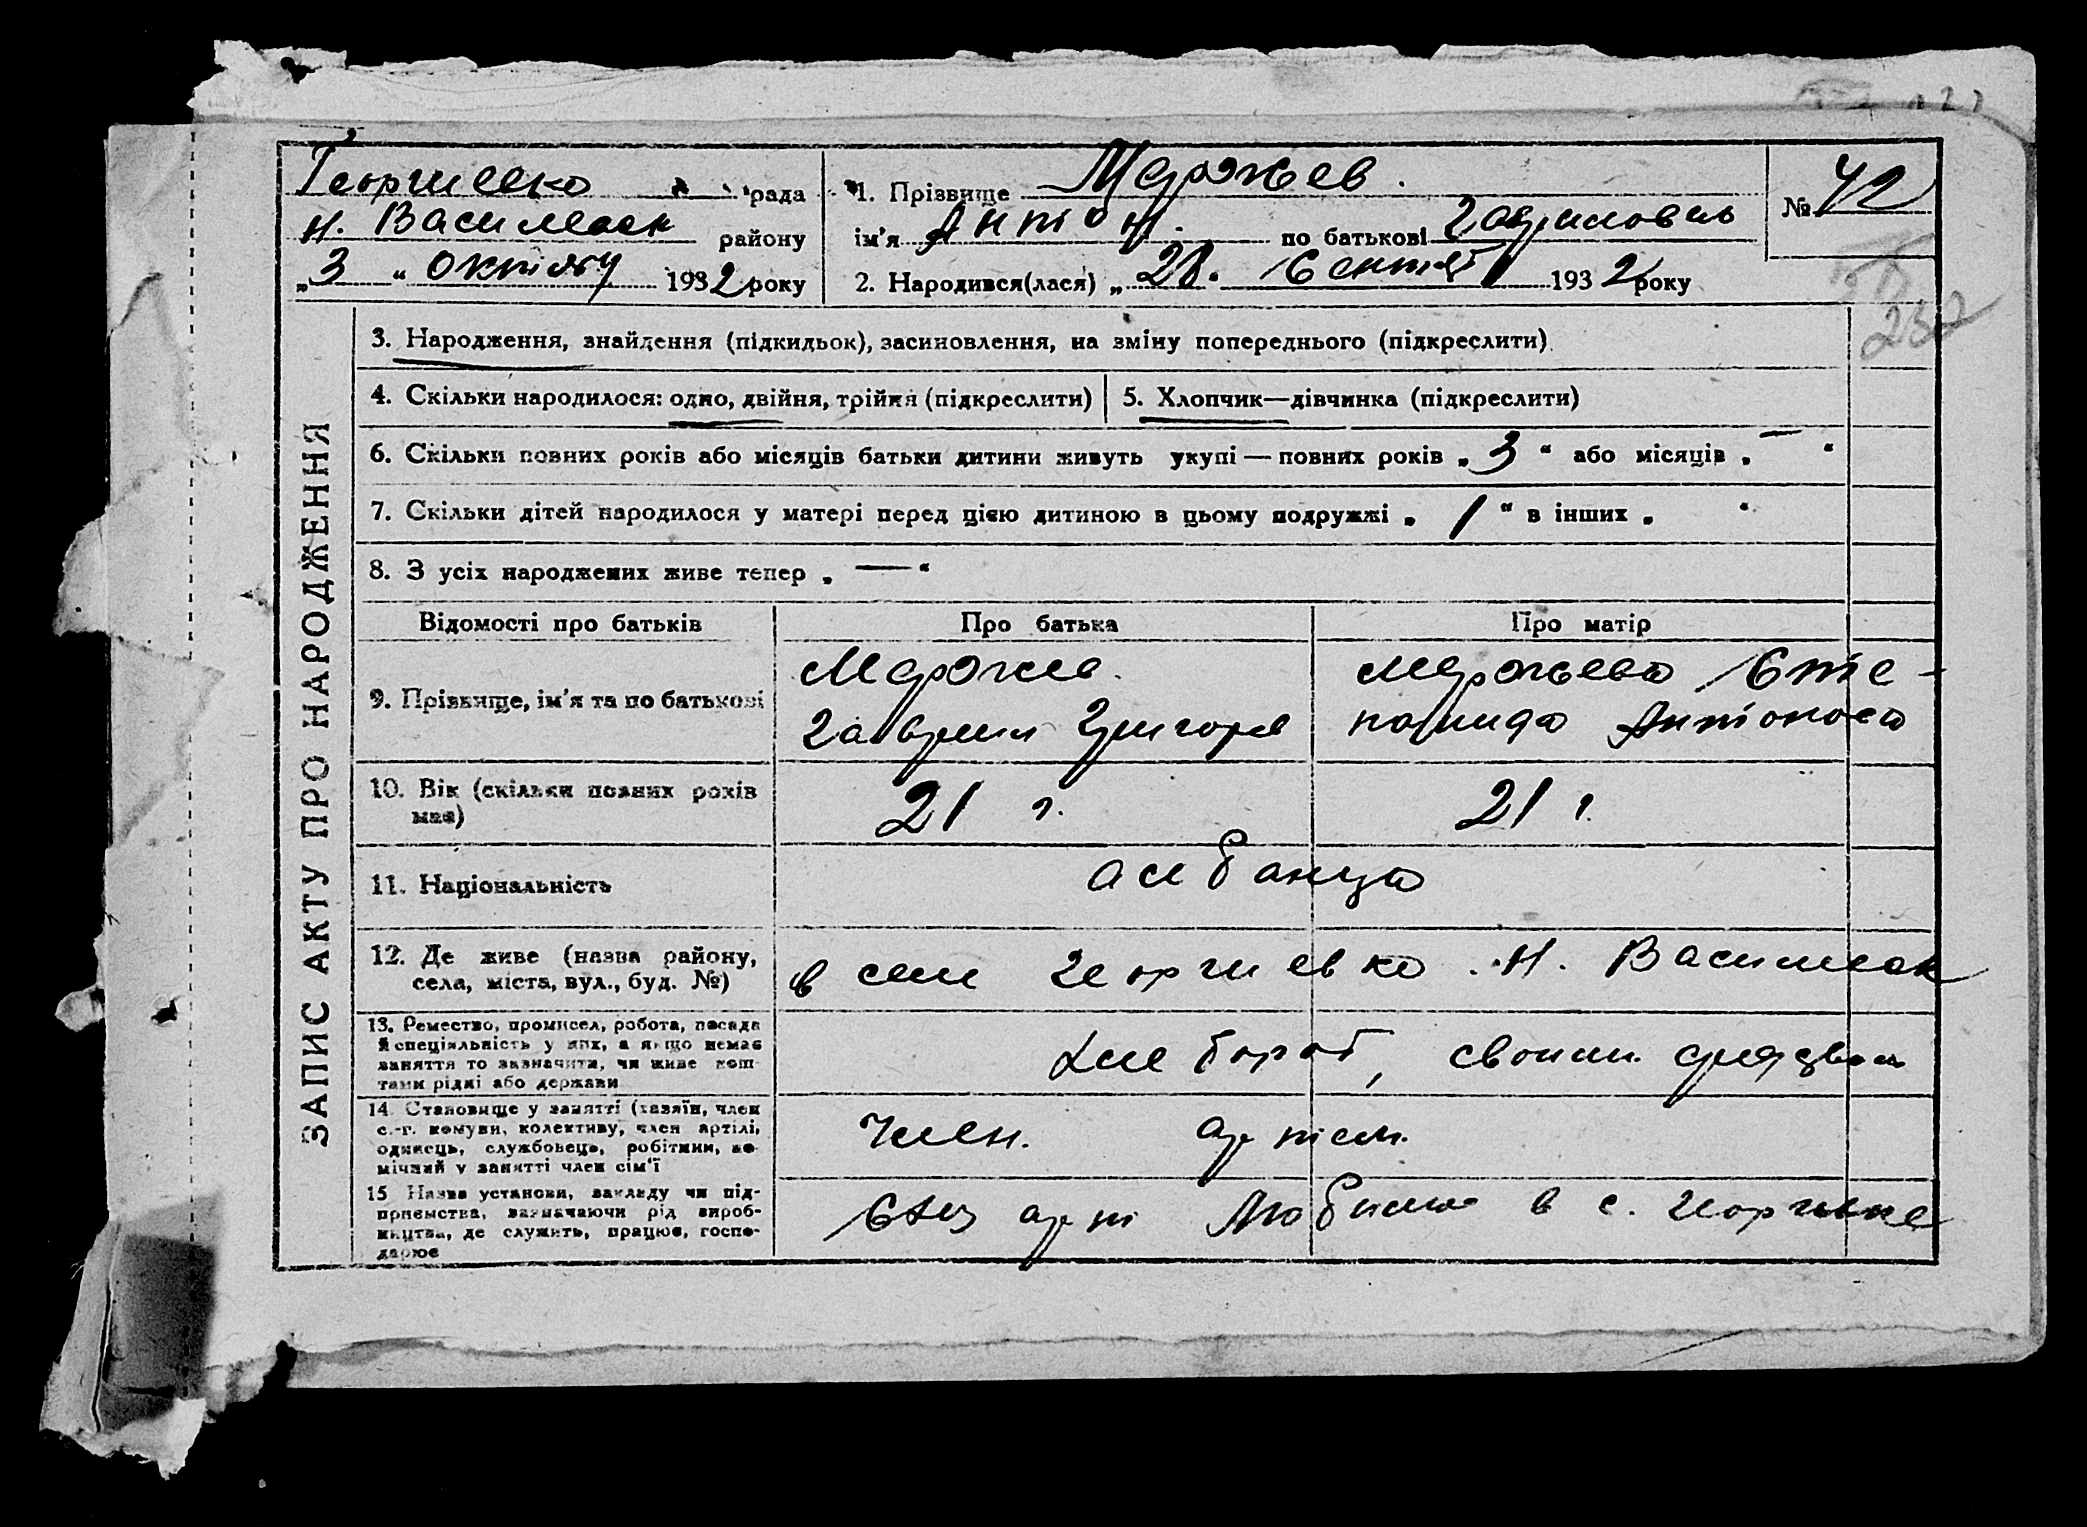 Георгиевка рада
Н. Василевск району
„3“ Октября 1932 року
1. Прізвище Мержев.
ім’я Антон. по батькові Гаврилович
2. Народився(лася) „28. Сентяб 1932 року
№ 42
232
ЗАПИС АКТУ ПРО НАРОДЖЕННЯ
3. Народження, знайдення (підкидьок), засиновлення, на зміну попереднього (підкреслити)
4. Скільки народилося: одно, двійня, трійня (підкреслити)
5. Хлопчик—дівчинка (підкреслити)
6. Скільки повних років або місяців батьки дитини живуть укупі — повних років „3“ або місяців „—“
7. Скільки дітей народилося у матері перед цією дитиною в цьому подружжі „1“ в інших „ “
8. З усіх народжених живе тепер „—“
Відомості про батьків Про батька Про матір
9. Прізвище, ім’я та по батькові
Мержев.
Гаврил Григорев
Мержева Сте-
понида Антонова
10. Вік (скільки повних років
має)
21 г.
21 г.
11. Національність
албанцы
12. Де живе (назва району,
села, міста, вул., буд. №)
в селе Георгиевка. Н. Василевск
13. Ремество, промисел, робота, посада
й спеціяльність у них, а якщо немає
заняття то зазначити, чи живе кош-
тами рідні або держави
Хлебороб, своими средзвам
14. Становище у занятті (хазяїн, член
с.-г. комуни, колективу, член артілі,
одинець, службовець, робітник, по-
мічний у занятті член сім’ї
Член. артели.
15 Назва установи, закладу чи під-
приємства, зазначаючи рід вироб-
ництва, де служить, працює, госпо-
дарює
арт в с.